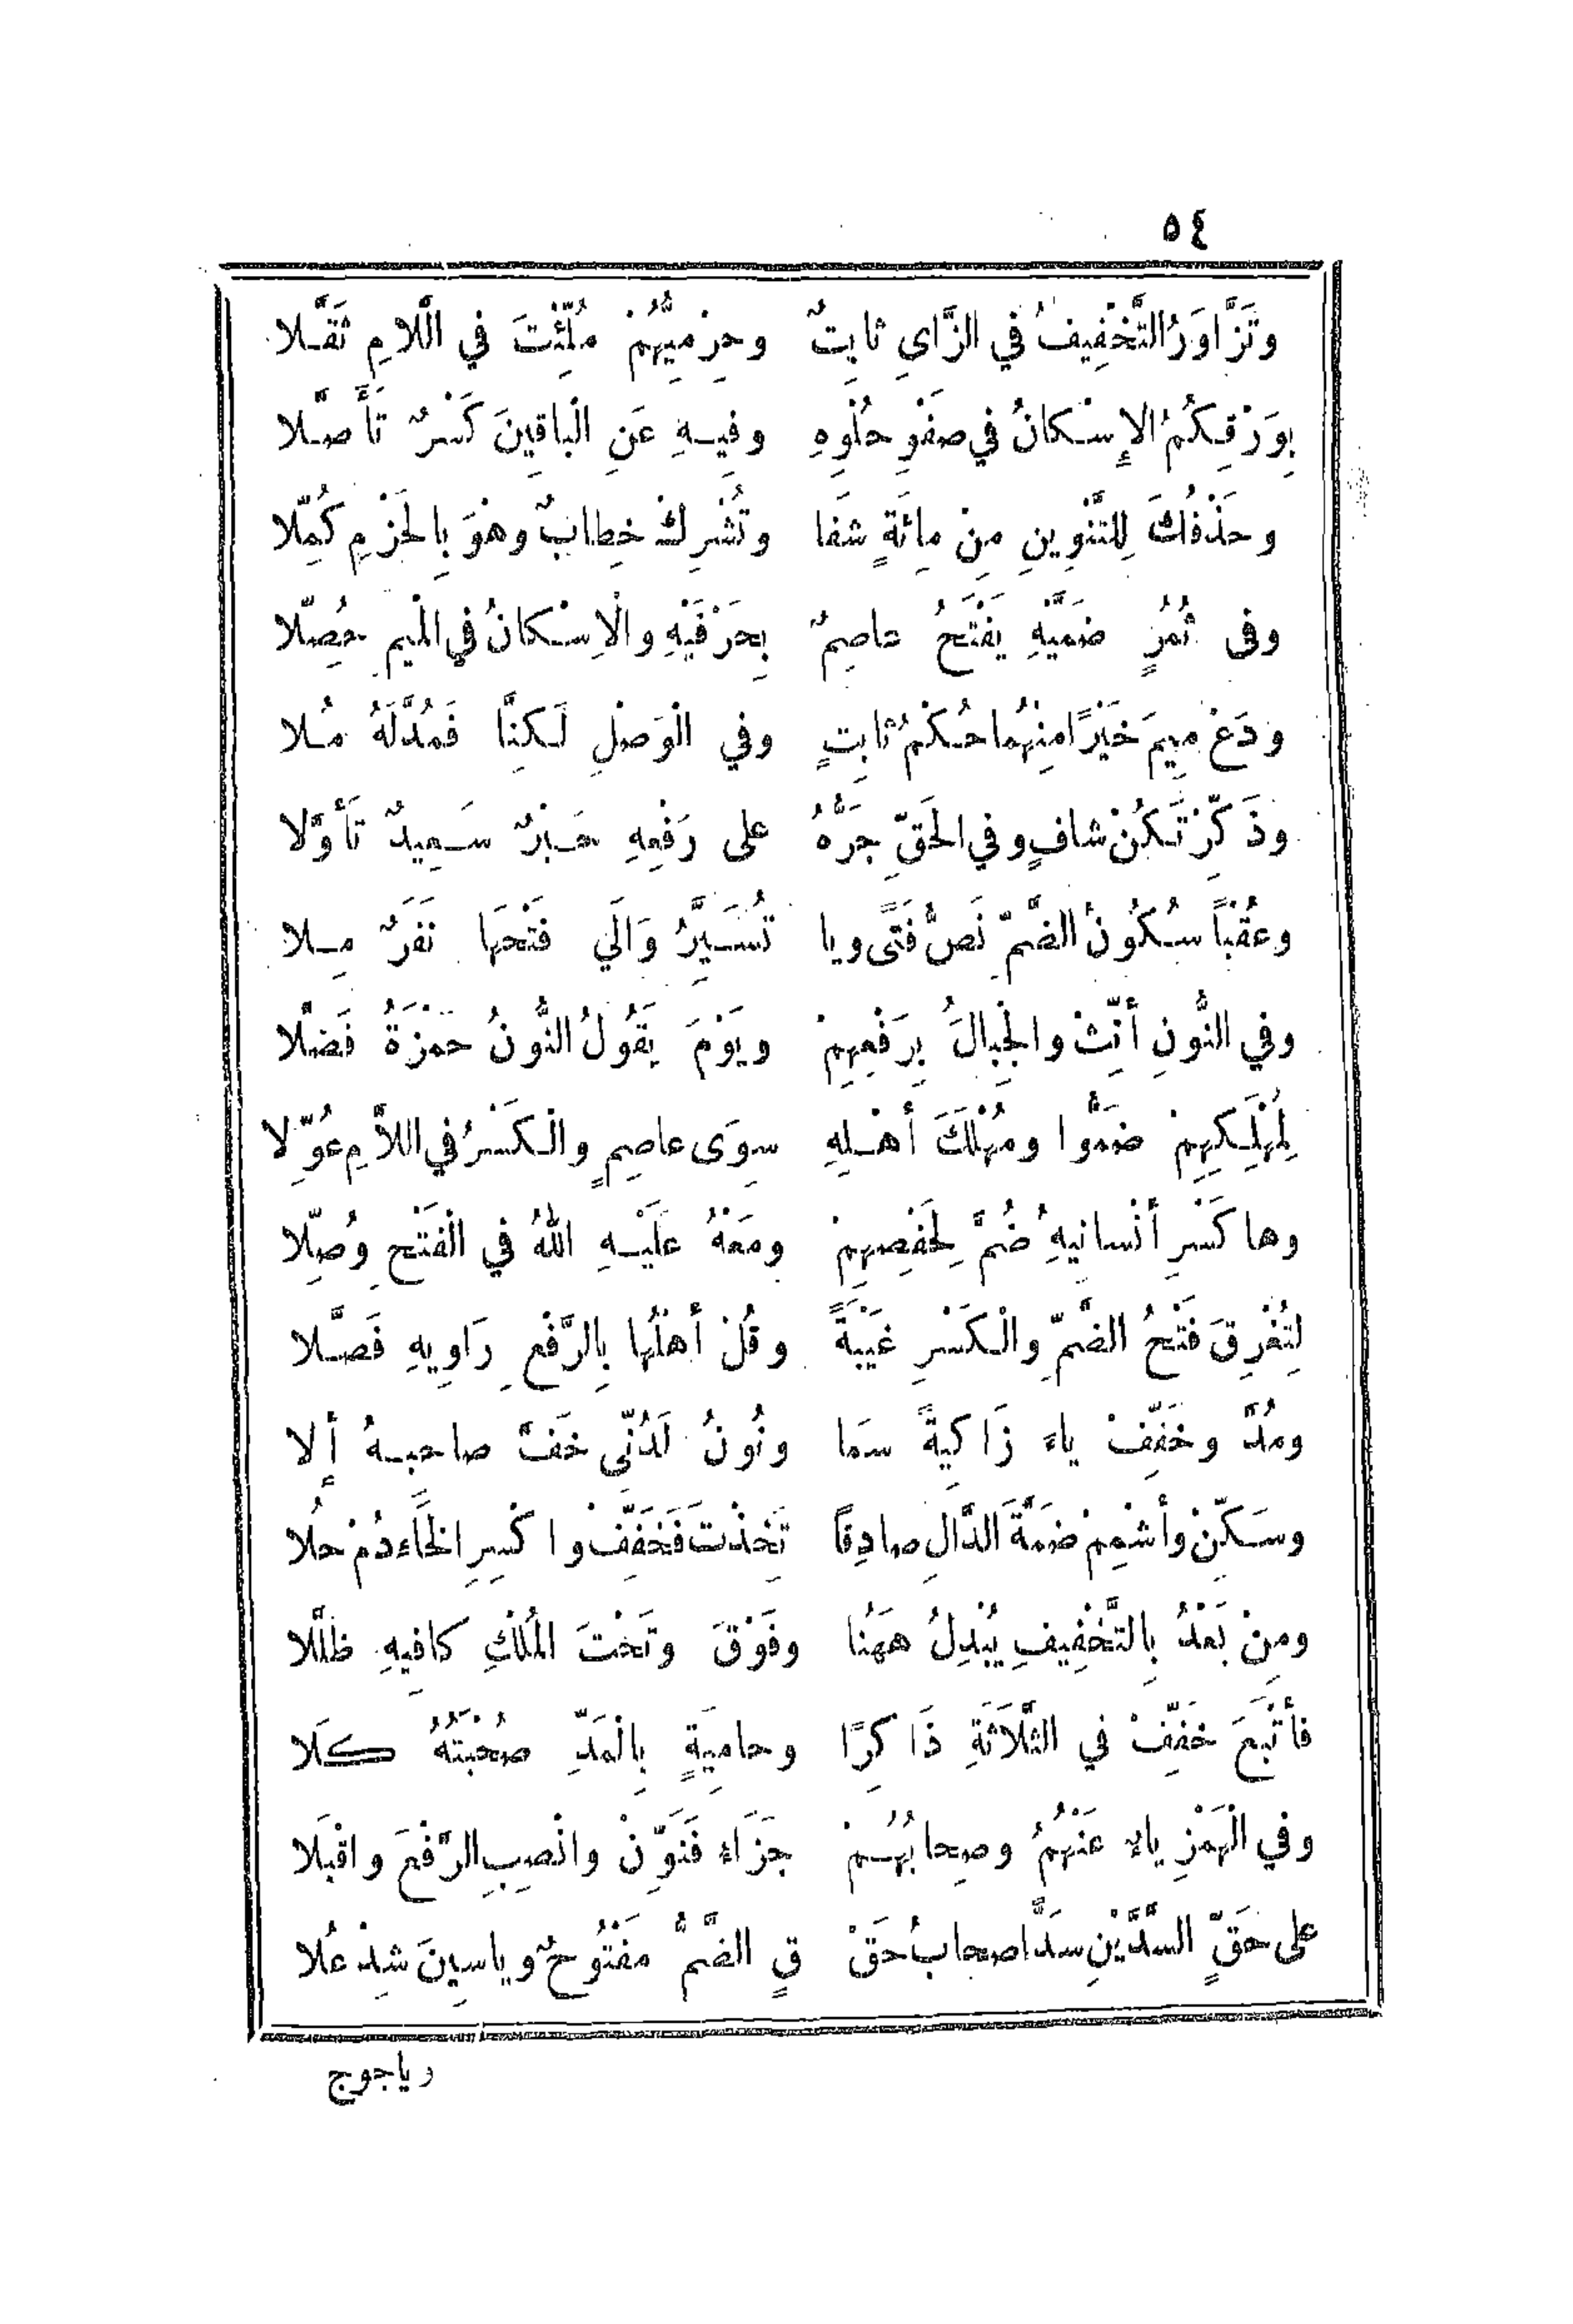 ٥٤
وَتَزَّاوَرُ التَّخْفِيفُ فِي الزَّايِ ثَابِتٌ وحِرْمِيُّهُمْ مُلِّئْتَ فِي الَّلامِ ثَقَّلا
بِوَرْقِكُمُ الإِسْكانُ في صَفْوِ حُلْوِهِ وفِيهِ عَنِ الْباقِينَ كَسْرٌ تَأَصَّلا
وحَذْفُكَ لِلتَّنْوِينِ مِنْ مِائَةٍ شَفَا وتُشْرِكْ خِطابٌ وهْوَ بِالجَزْمِ كُمِّلا
وفى ثُمُرٍ ضَمَّيْهِ يَفْتَحُ عاصِمٌ بِحَرْفَيْهِ والْاِسْكانُ في الْمِيمِ حُصِّلا
ودَعْ مِيمَ خَيْرًا مِنْهُمَا حُكْمُ ثابِتٍ وفي الْوَصْلِ لَكِنَّا فَمُدَّلَهُ مُلا
وذَكِّرْ تَكُنْ شافٍ وفي الحَقِّ جَرُّهُ على رَفْعِهِ حَبْرٌ سَعِيدٌ تَأَوَّلا
وعُقْباً سُكُونُ الضَّمِّ نَصُّ فَتًى ويا تُسَيِّرُ وَالَى فَتْحَهَا نَفَرٌ مِلا
وفي النُّونِ أَنِّثْ والْجِبالَ بِرَفْعِهِمْ ويَوْمَ يَقُولُ النُّونُ حَمْزَةُ فَضَّلا
لِمَهْلَكِهِمْ ضَمُّوا ومَهْلَكَ أَهْلِهِ سِوَى عاصِمٍ والْكَسْرُ في اللاَّمِ عُوِّلا
وها كَسْرِ أَنْسانِيهِ ضُمَّ لِحَفْصِهِمْ ومَعْهُ عَلَيْهِ اللهَ في الْفَتْحِ وُصِّلا
لِتُغْرِقَ فَتْحُ الضَّمِّ والْكَسْرِ غَيْبَةً وقُلْ أَهْلُهَا بِالرَّفْعِ رَاوِيهِ فَصَّلا
ومُدَّ وخَفِّفْ ياءَ زَاكِيةً سَمَا ونُونُ لَدُنِّي خَفَّ صاحِبهُ إِلا
وسَكِّنْ وأَشْمِمْ ضَمَّةَ الدَّالِ صادِقاً تَخِذْتَ فَخَفِّفْ واكْسِرِ الْخَاءَ دُمْ حُلا
ومِنْ بَعْدُ بِالتَّخْفِيفِ يُبْدِلُ هَهُنا وفَوْقَ وتَحْتَ الْمُلْكِ كافِيهِ ظَلَّلا
فأَتْبَعَ خَفِّفْ في الثَّلَاثَةِ ذَاكِرًا وحامِيَةٍ بِالْمَدِّ صُحْبَتُهُ كَلَا
وفي الْهَمْزِ ياءٌ عَنْهُمُ وصِحابُهُمْ جَزَاءُ فَنَوِّنْ وانْصِبِ الرَّفْعَ واقْبَلَا
على حَقٍّ السَّدَّيْنِ سَدًّا صِحابُ حَقْ قٍ الضَّمُّ مَفْتُوحٌ وياسِينَ شِدْ عُلا
وياجوج